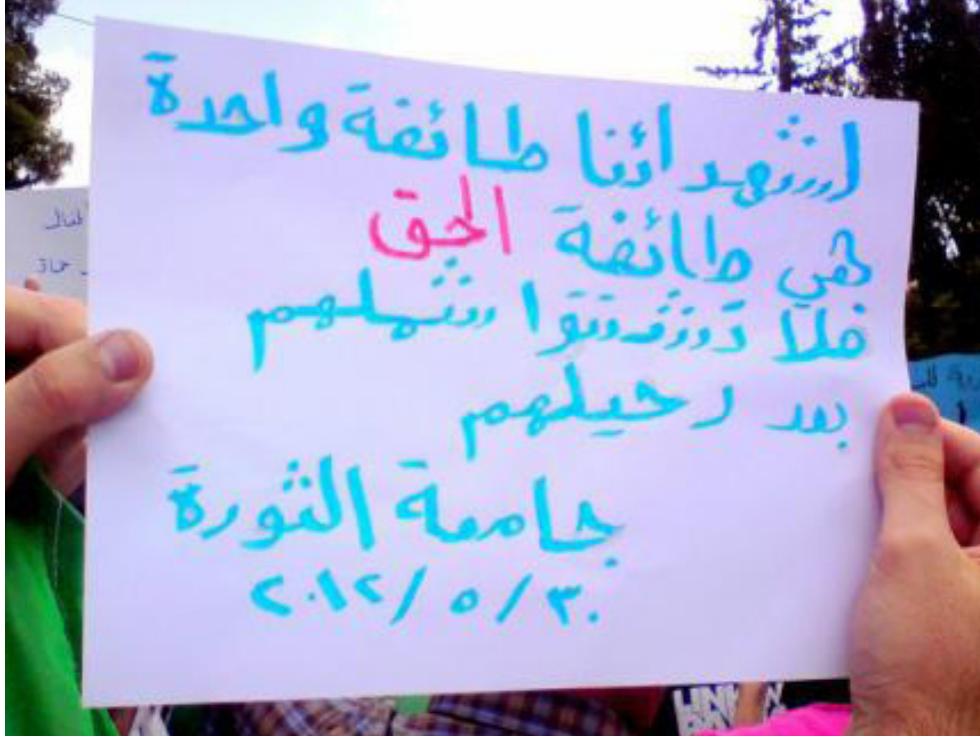 لشهدائنا طائفة واحدة
هي طائفة الحق
فلا تشتتوا شملهم
بعد رحيلهم
جامعة الثورة
٢٠١٢/٥/٣٠